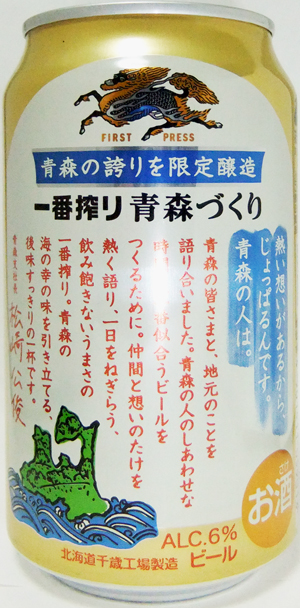 FIRST PRESS
青森の誇りを限定醸造
一番搾り 青森づくり
熱い想があるから、
じょっぱるんです。
青森の人は。
青森の皆さまと、地元のことを
語り合いました。青森の人のしあわせな
一番似合うビールを
つくるために。仲間と想いのたけを
熱く語り、一日をねぎらう、
飲み飽きないうまさの
一番搾り。青森の
海の幸の味を引き立てる、
後味すっきりの一杯です。
青森支社長
お酒
ALC.6%
ビール
北海道千歳工場製造